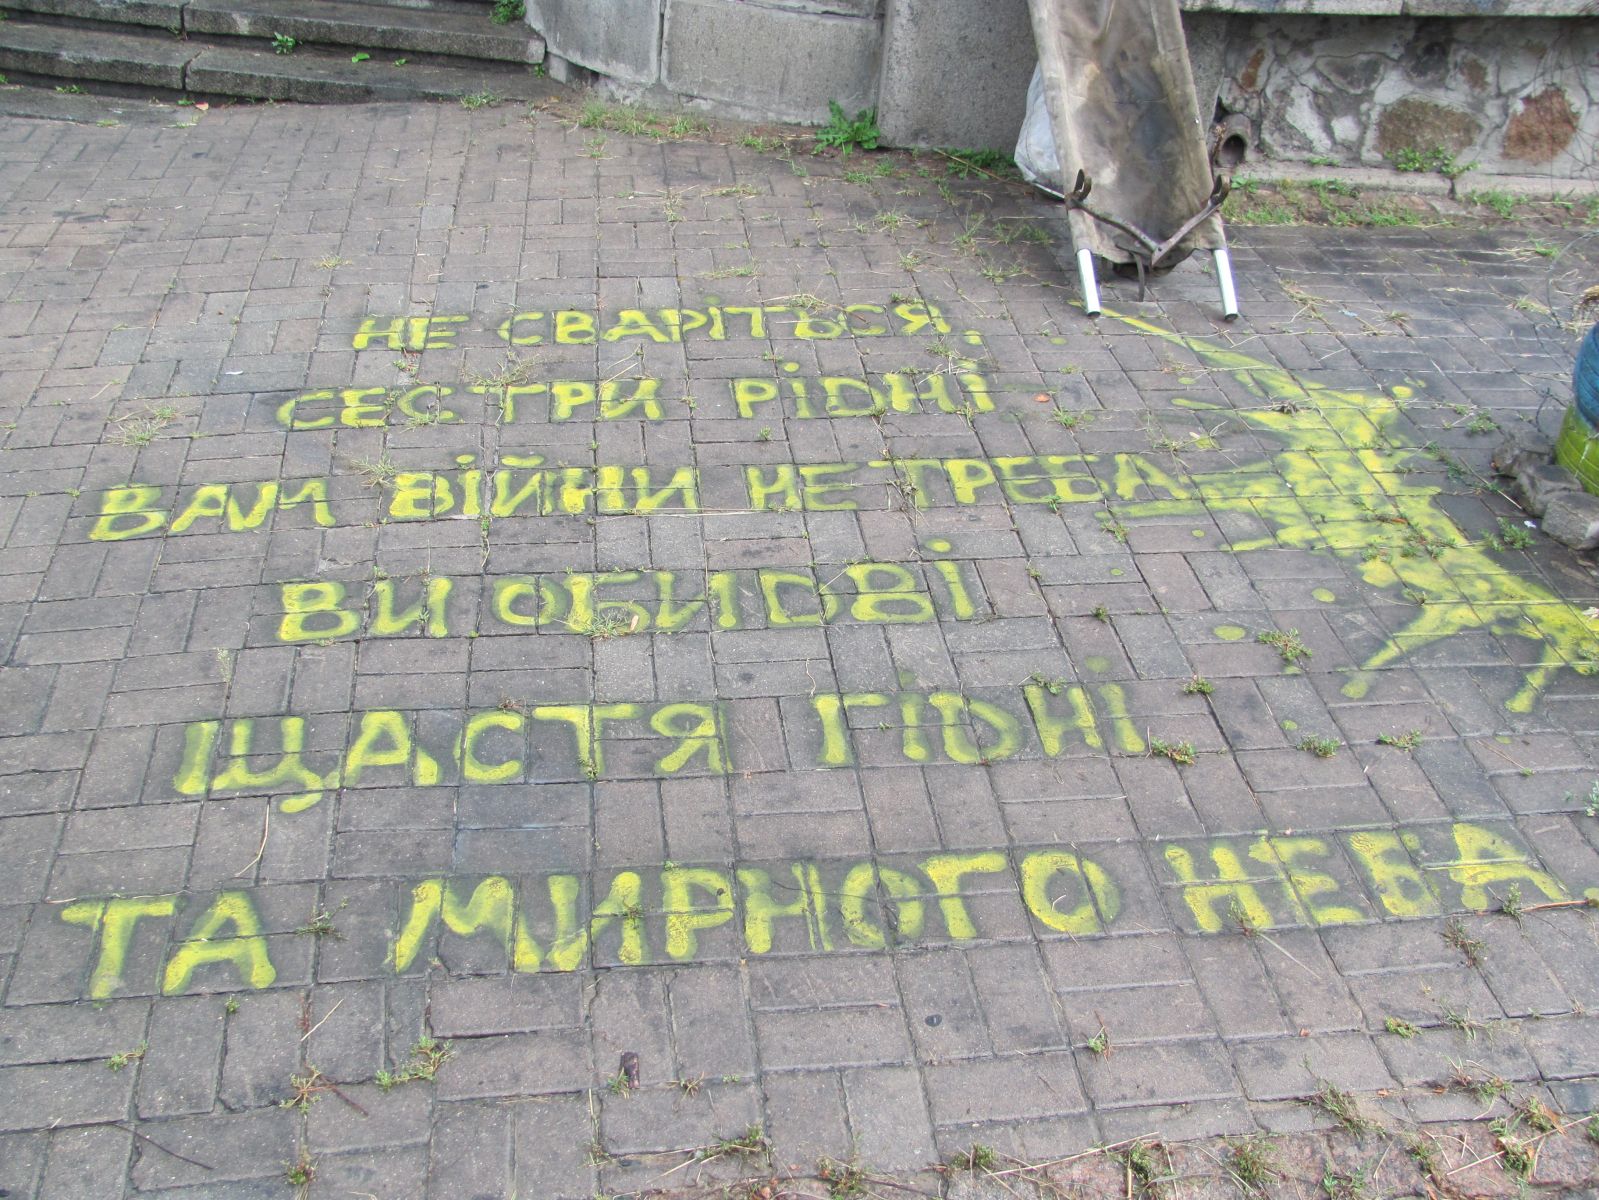 НЕ СВАРІТЬСЯ,
СЕСТРИ РІДНІ
ВАМ ВІЙНИ НЕ ТРЕБА
ВИ ОБИДВІ
ЩАСТЯ ГІДНІ
ТА МИРНОГО НЕБА.